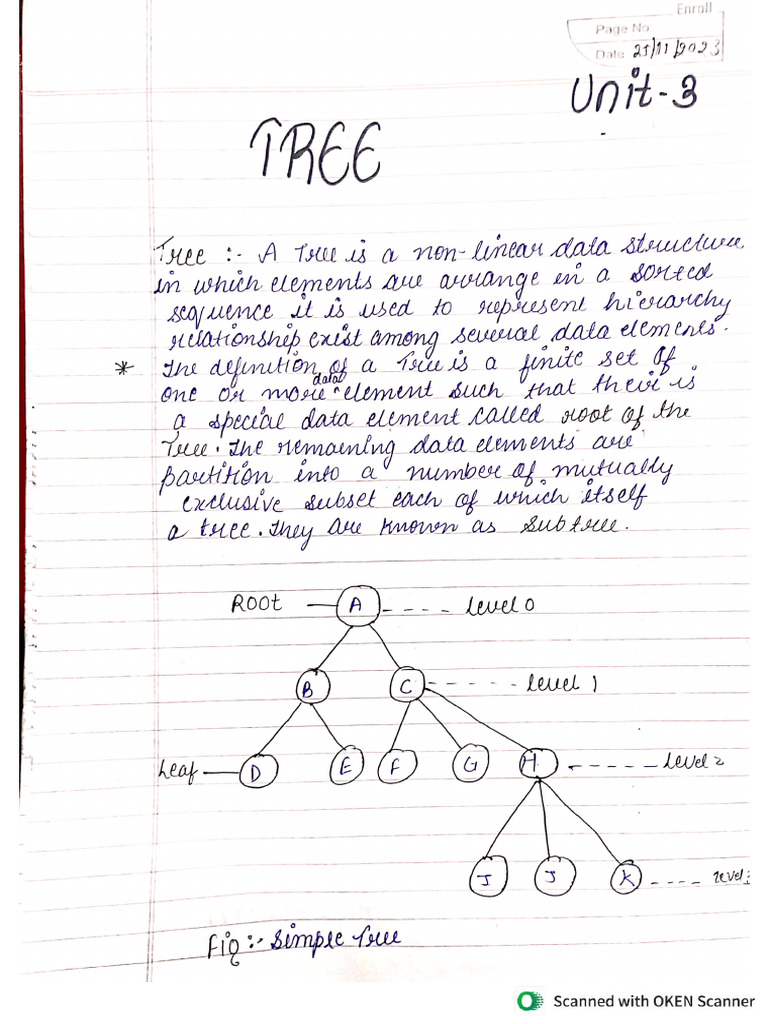 Enroll
Page No
Date 25/11/2023
Unit-3
TREE
Tree :- A Tree is a non-linear data structure
in which elements are arrange in a sorted
sequence it is used to represent hierarchy
relationship exist among several data elements.
* The definition of a Tree is a finite set of
one or more data element such that their is
a special data element called root of the
Tree. The remaening data elements are
partition into a number of mutually
exclusive subset each of which itself
a tree. They are known as subtree.
ROOT A level 0
B C level 1
Leaf D E F G H level 2
I J K level
Fig:- Simple Tree
Scanned with OKEN Scanner